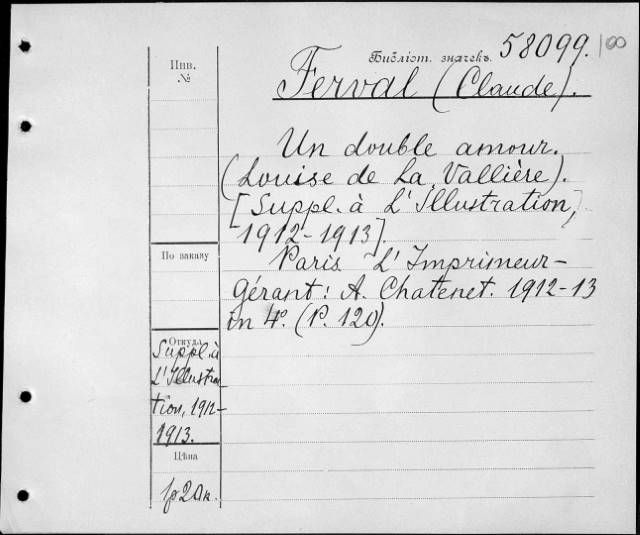 Инв.
№
Библіот. значекъ. 58099. 100
Ferval (Claude).
Un double amour.
(Louise de La Vallière).
[Suppl. à L'Illustration,
1912-1913].
По заказу
Paris L'Imprimeur-
Gérant: A. Chatenet. 1912-13
in 4º. (P. 120).
Откуда
Suppl. à
L'Illustra-
tion, 1912-
1913.
Цѣна
1р 20 к.